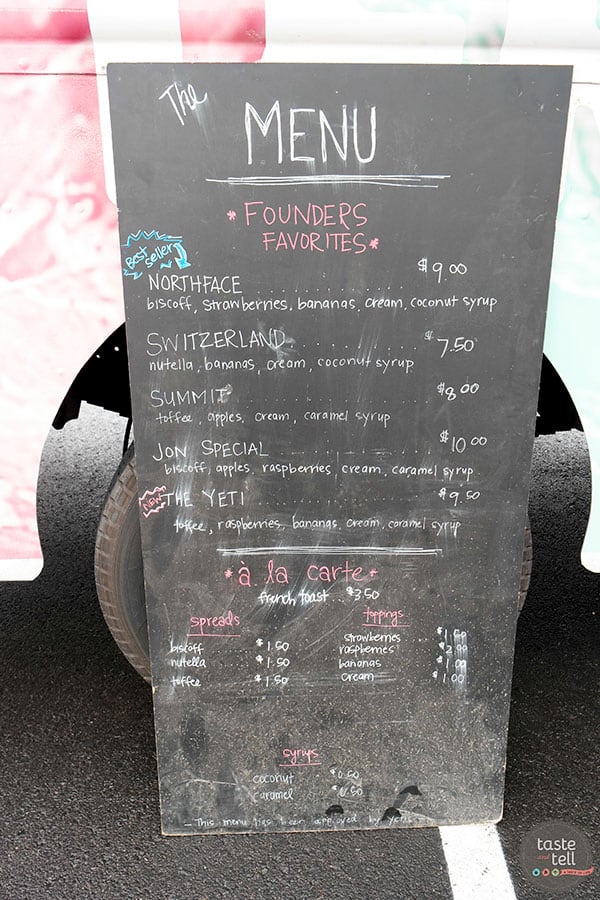 The
MENU
* FOUNDERS
FAVORITES *
Best
seller
$9.00
NORTHFACE
biscoff, strawberries, bananas, cream, coconut syrup
SWITZERLAND $7.50
nutella, bananas, cream, coconut syrup
SUMMIT $8.00
toffee, apples, cream, caramel syrup
JON SPECIAL $10.00
biscoff, apples, raspberries, cream, caramel syrup
NEW THE YETI $9.50
toffee, raspberries, bananas, cream, caramel syrup
* à la carte *
french toast... $3.50
spreads
biscoff $1.50
nutella $1.50
toffee $1.50
toppings
strawberries
raspberries
bananas $1.00
cream $1.00
syrups
coconut $0.50
caramel $0.50
- This menu has been approved by
taste
and tell